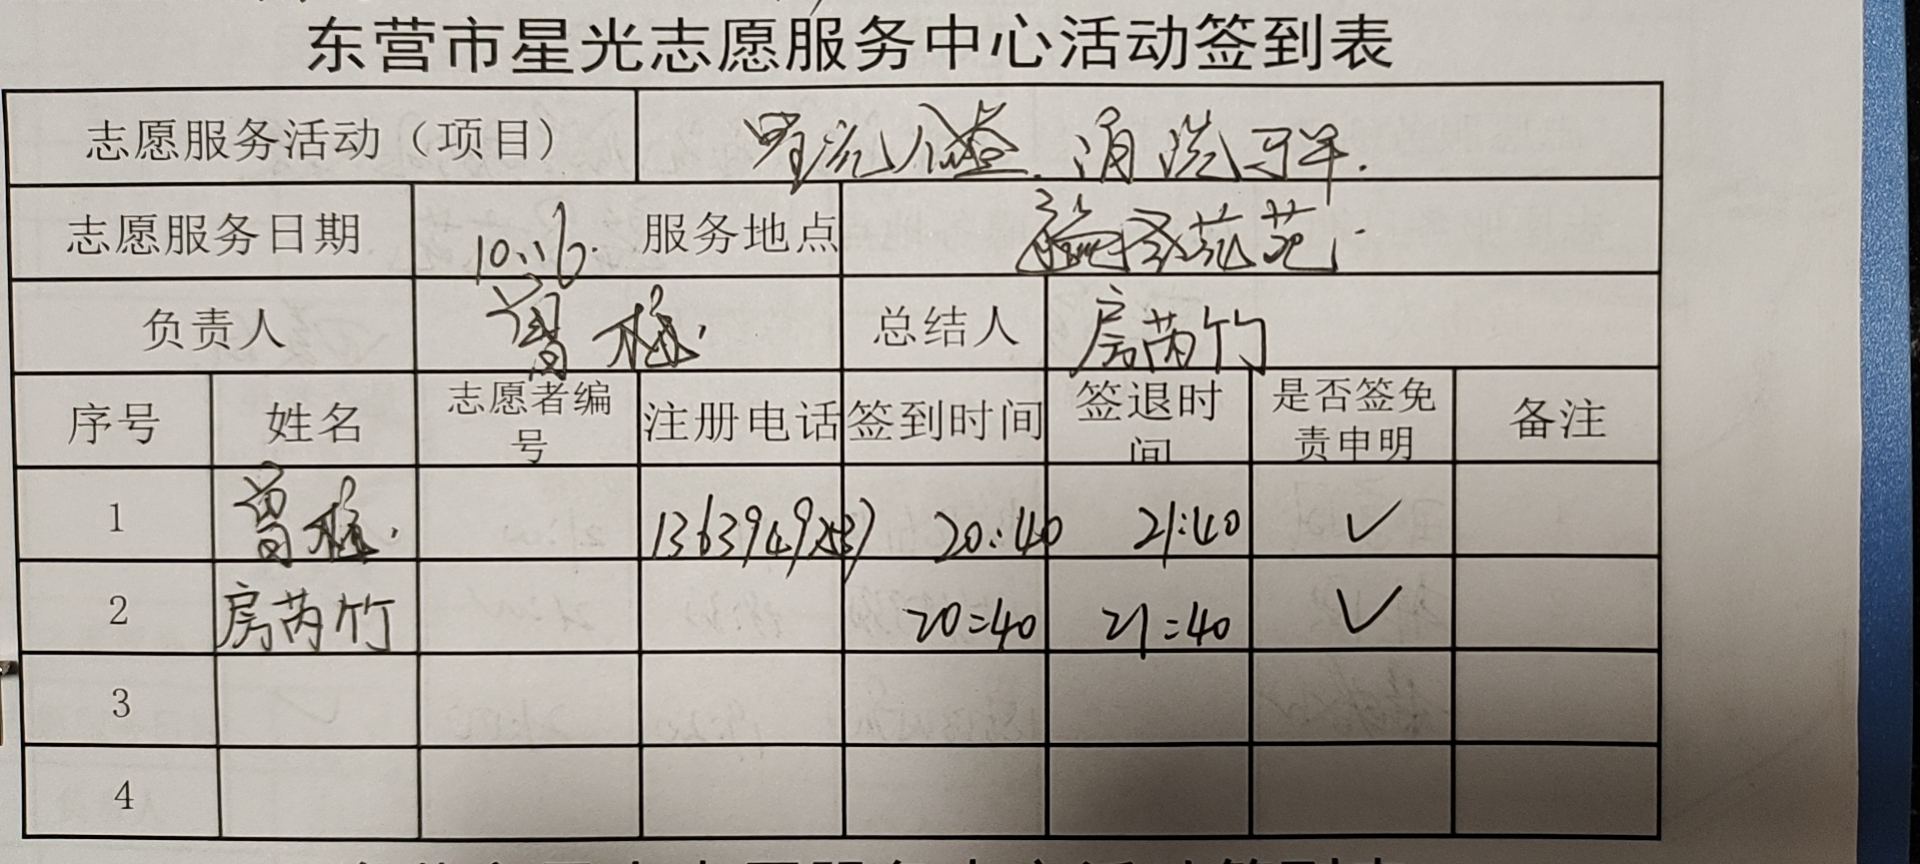 东营市星光志愿服务中心活动签到表
志愿服务活动（项目）
志愿服务日期 10.16. 服务地点
负责人 曾 总结人 房芮竹
序号 姓名 志愿者编号 注册电话 签到时间 签退时间 是否签免责申明 备注
1 曾 20:40 21:40 ✓
2 房芮竹 20:40 21:40 ✓
3
4